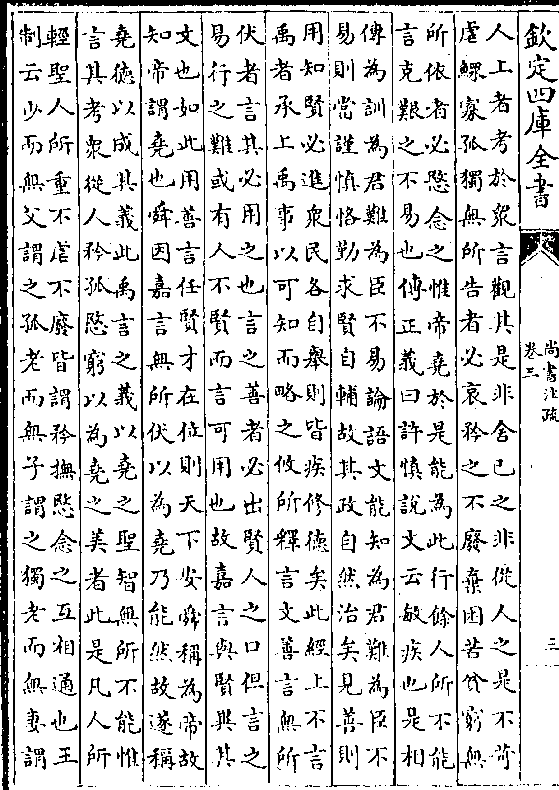 欽定四庫全書
尚書注疏
卷三
三
人上者考於衆言觀其是非舍己之非從人之是不苛
虐鰥寡孤獨無所告者必哀矜之不廢棄困苦貧窮無
所依者必愍念之惟帝堯於是能為此行餘人所不能
言克艱之不易也傳正義曰許慎說文云敏疾也是相
傳為訓為君難為臣不易論語文能知為君難為臣不
易則當謹慎恪勤求賢自輔故其政自然治矣見善則
用知賢必進衆民各自舉則皆疾修德矣此經上不言
禹者承上禹事以可知而略之攸所釋言文善言無所
伏者言其必用之也言之善者必出賢人之口但言之
易行之難或有人不賢而言可用也故嘉言與賢異其
文也如此用善言任賢才在位則天下安舜稱為帝故
知帝謂堯也舜因嘉言無所伏以為堯乃能然故遂稱
堯德以成其義此禹言之義以堯之聖智無所不能惟
言其考衆從人矜孤愍窮以為堯之美者此是凡人所
輕聖人所重不虐不廢皆謂矜撫愍念之互相通也王
制云少而無父謂之孤老而無子謂之獨老而無妻謂